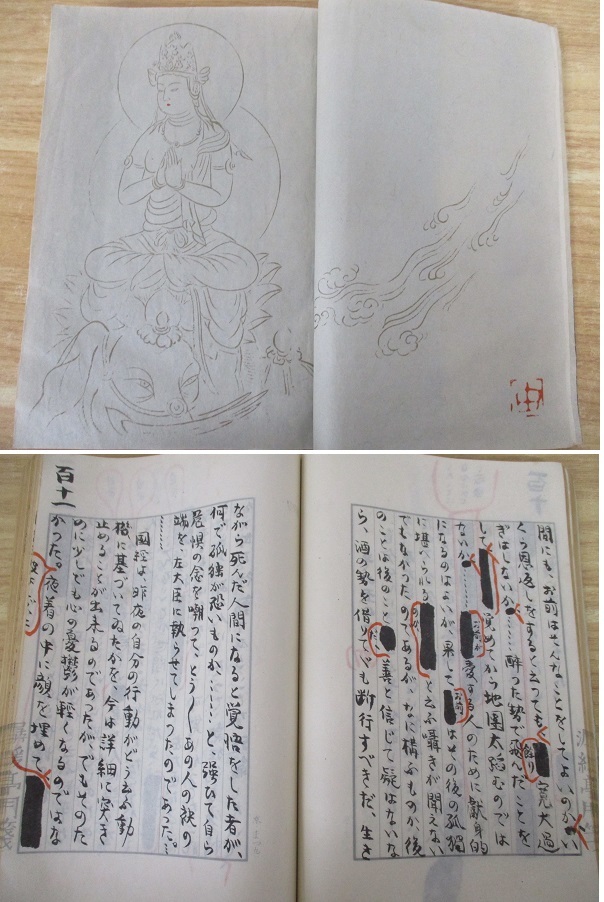 百十
間にも、お前はそんなことをしてよいのか、い
くら恩返しをすると云つても、餘り寛大過
ぎはしないか、……醉つた勢で飛んだことを
して覚めてから地團太蹈むのでは
ないか、お前が愛する人のために献身的
になるのはよいが、果してお前はその後の孤獨
に堪へられるのか、と云ふ囁きが聞えない
でもなかつたのであるが、なに構ふものか、後
のことは後のことだ、善と信じて疑はないな
ら、酒の勢を借りてゞも断行すべきだ、生き
百十一
ながら死んだ人間になると覚悟をした者が、
何で孤獨が恐いものか、……と、強ひて自ら
危惧の念を嘲つて、とう〳〵あの人の袂の
端を、左大臣に執らせてしまつたのであつた。…
………
國經は、昨夜の自分の行動がどう云ふ動
機に基づいてゐたかを、今は詳細に突き
止めることが出来るのであつたが、でもそのた
めに少しでも心の憂鬱が軽くなるのではな
かつた。夜着の中に顔を埋めて